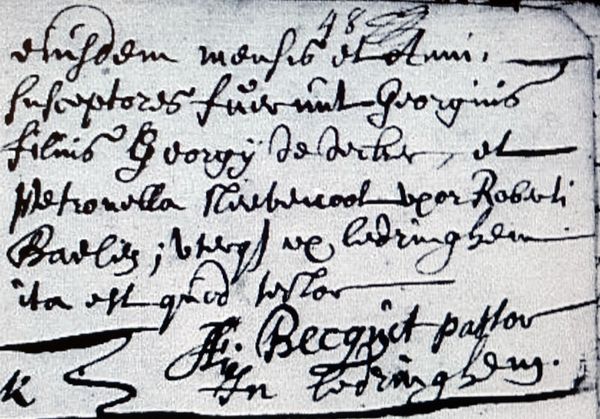 48
eiusdem mensis et Anni,
susceptores fuerunt Georgius
filius Georgij de decker, et
Petronella uxor Roberti
Baelde; uterq ex ledringhem
ita est quod testor
Becquet pastor
In ledringhem.